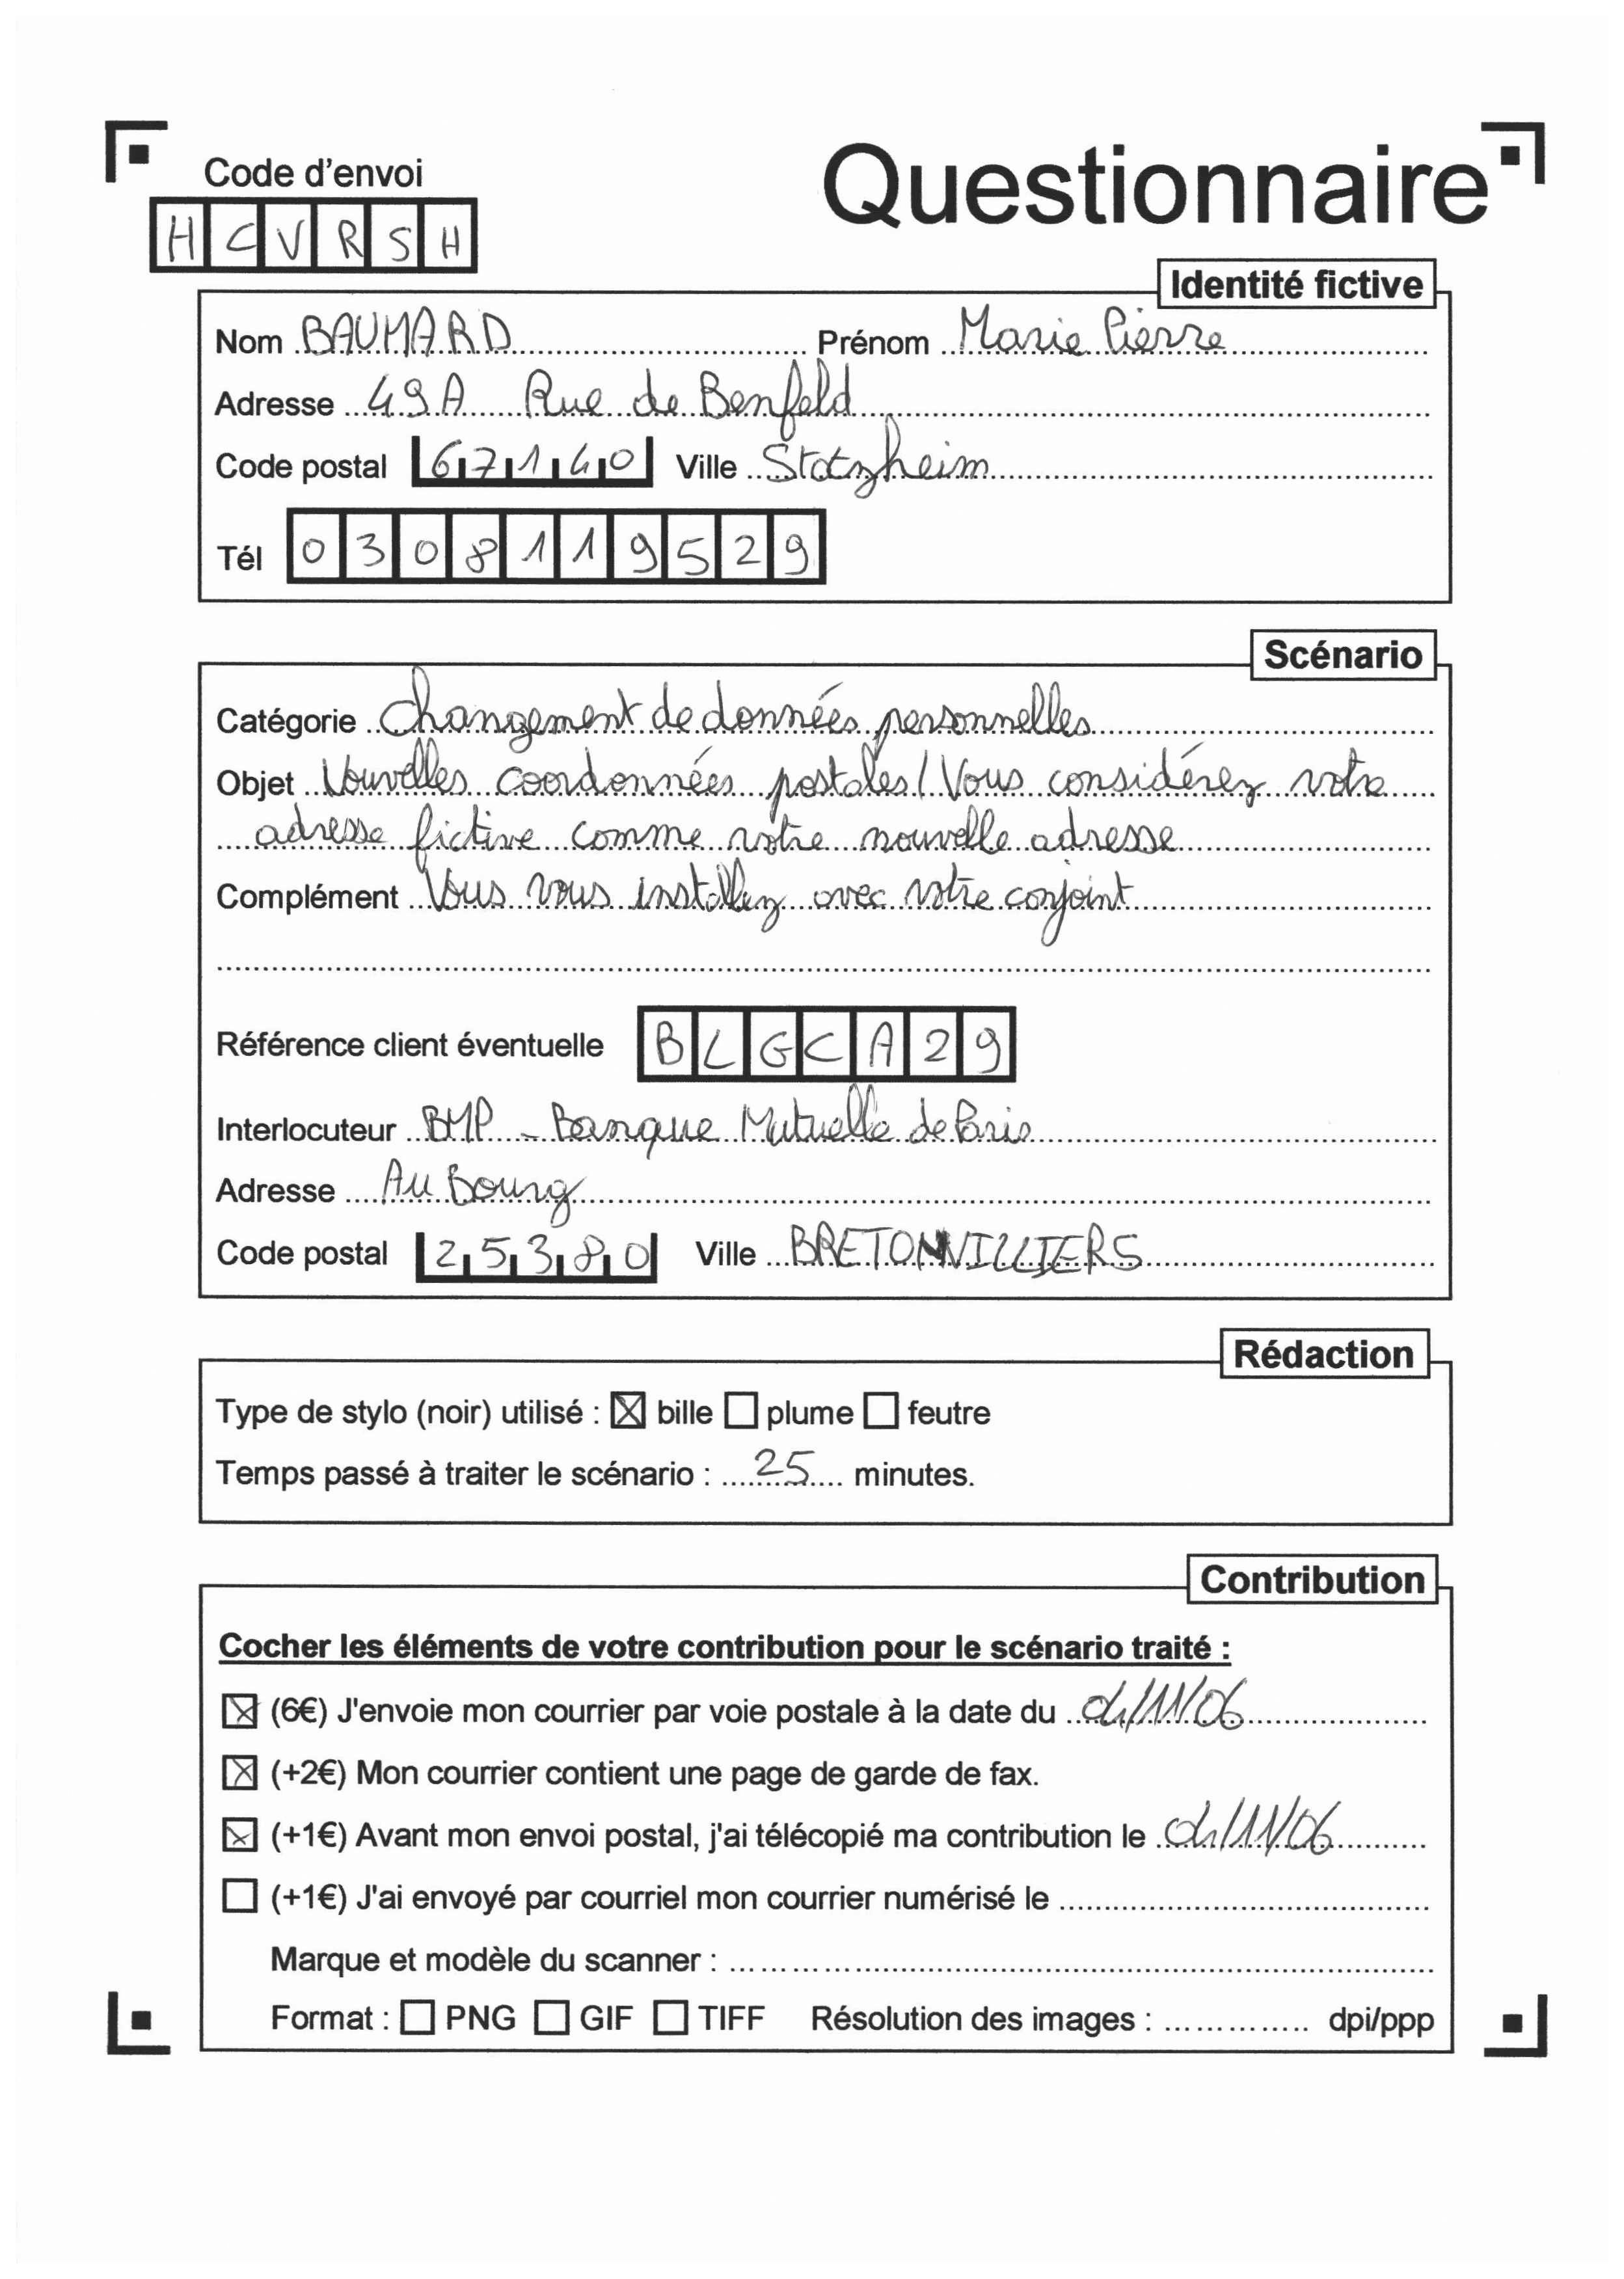 Code d'envoi
Questionnaire
H C V R S H
Identité fictive
Nom BAUMARD Prénom Marie Pierre
Adresse 49A Rue de Benfeld
Code postal 67140 Ville Stotzheim
Tél 0308119529
Scénario
Catégorie Changement de données personnelles
Objet Nouvelles coordonnées postales / Vous considérez votre
adresse fictive comme votre nouvelle adresse
Complément Vous vous installez avec votre conjoint
Référence client éventuelle BLGCA29
Interlocuteur BMP - Banque Mutuelle de Paris
Adresse Au Bourg
Code postal 25380 Ville BRETONVILLIERS
Rédaction
Type de stylo (noir) utilisé : bille plume feutre
Temps passé à traiter le scénario : 25 minutes.
Contribution
Cocher les éléments de votre contribution pour le scénario traité :
(6€) J'envoie mon courrier par voie postale à la date du
(+2€) Mon courrier contient une page de garde de fax.
(+1€) Avant mon envoi postal, j'ai télécopié ma contribution le
(+1€) J'ai envoyé par courriel mon courrier numérisé le
Marque et modèle du scanner :
Format : PNG GIF TIFF Résolution des images : dpi/ppp